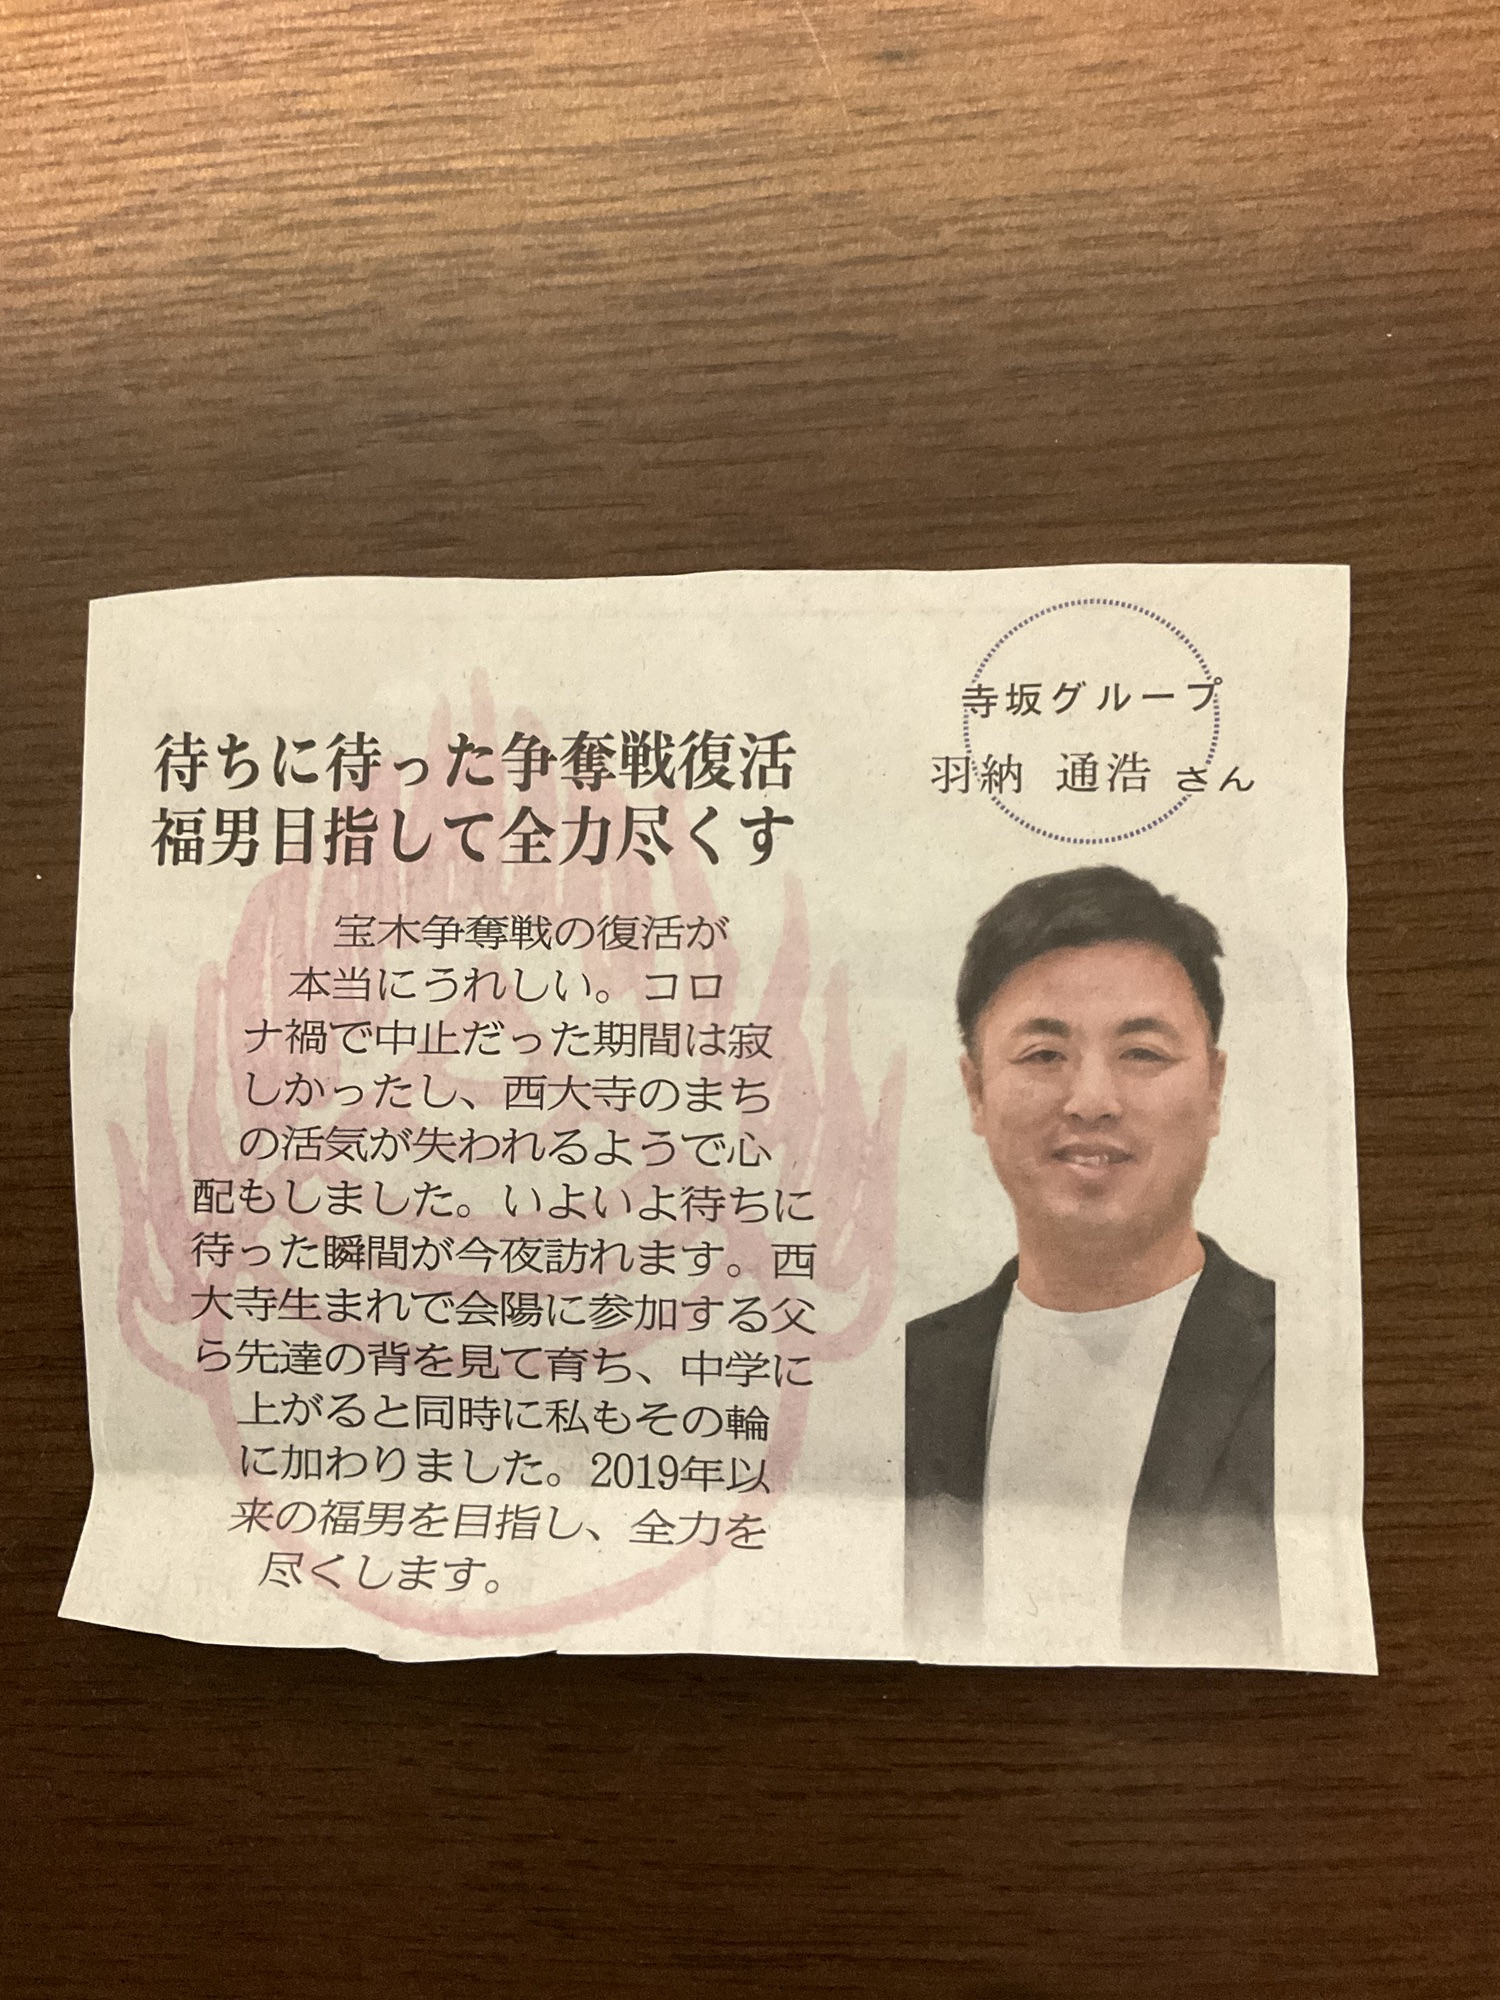 待ちに待った争奪戦復活
福男目指して全力尽くす
寺坂グループ
羽納 通浩 さん
宝木争奪戦の復活が
本当にうれしい。コロ
ナ禍で中止だった期間は寂
しかったし、西大寺のまち
の活気が失われるようで心
配もしました。いよいよ待ちに
待った瞬間が今夜訪れます。西
大寺生まれで会陽に参加する父
ら先達の背を見て育ち、中学に
上がると同時に私もその輪
に加わりました。2019年以
来の福男を目指し、全力を
尽くします。